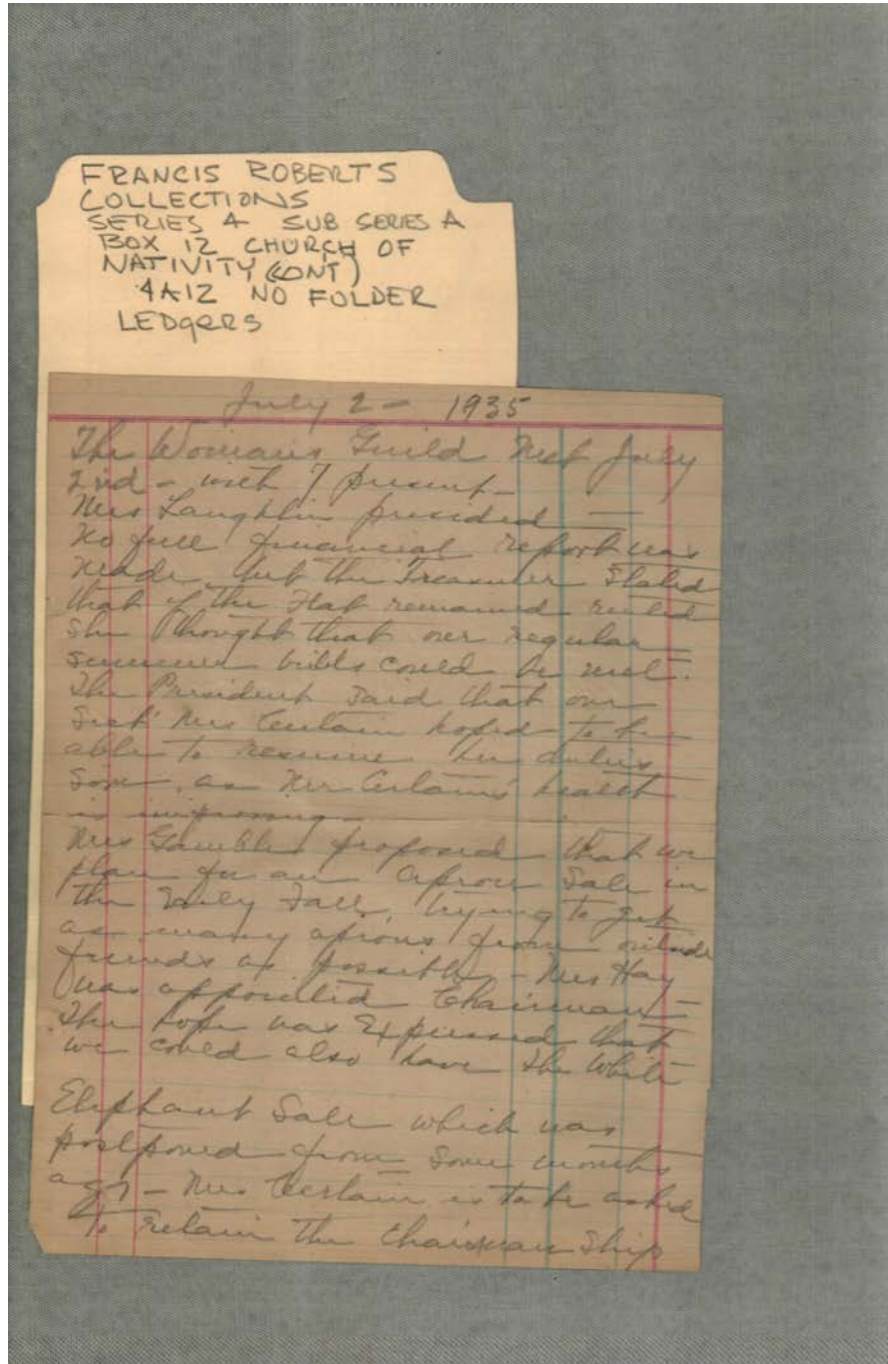 FRANCIS ROBERTS
COLLECTIONS
SERIES 4 SUB SERIES A
BOX 12 CHURCH OF
NATIVITY (CONT)
4A12 NO FOLDER
LEDGERS
July 2 - 1935
The Womans Guild met July
2nd - with 7 present -
Mrs Laughlin presided —
No full financial report was
made, but the Treasurer stated
that if the Flat remained rented
she thought that our regular
summer bills could be met.
The President said that our
Sect Mrs Certain hoped to be
able to resume her duties
soon, as Mr Certain's health
is improving -
Mrs Gamble proposed that we
plan for an Apron Sale in
the Early Fall, trying to get
as many aprons from outside
friends as possible - Mrs Hay
was appointed Chairman -
The hope was Expressed that
we could also have the White
Elephant Sale which was
postponed from some months
ago - Mrs Certain is to be asked
to retain the Chairman ship